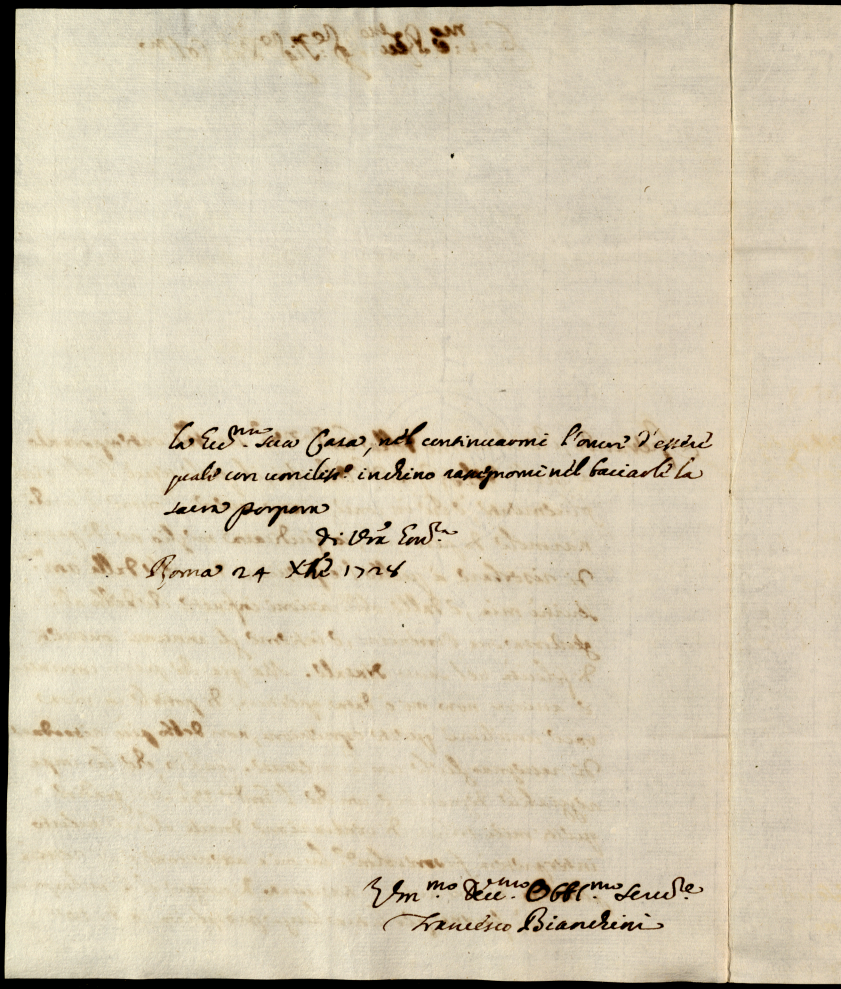 la Ecc.ma sua Casa, nel continuarmi l'onore d'essere
quale con umiliss.o inchino rassegnomi nel baciarle la
sacra porpora
di Vra Em.za
Roma 24 Xbre 1728
Um.mo Dev.mo Obbl.mo Serv.re
Francesco Bianchini